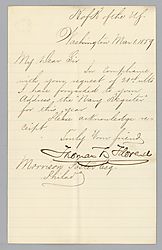 Washington Mar 1, 1859
My Dear Sir
In compliance
with your request of
I have forwarded to your
Address, the "Navy Register"
for this year
Please acknowledge re-
ceipt.
Truly Your friend
Thomas B Florence
Esq.
Philad